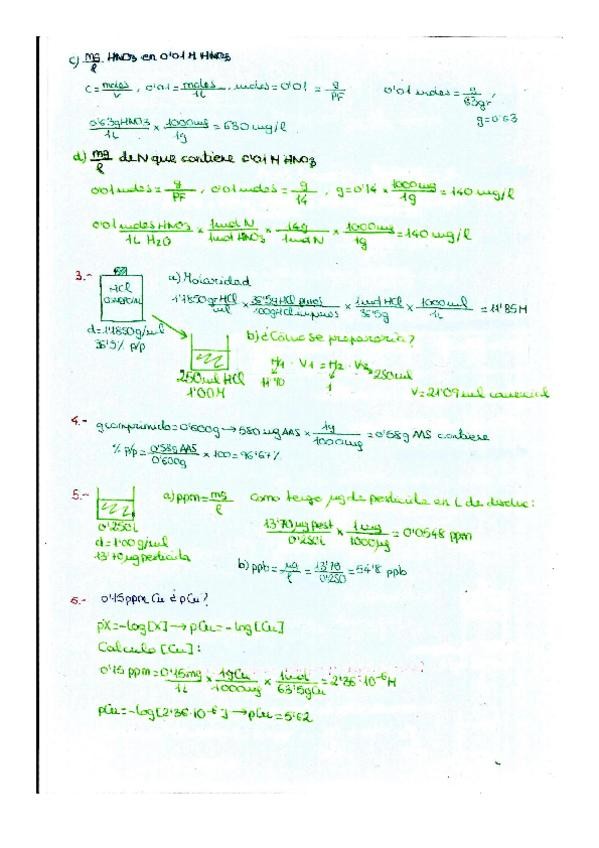 c) mg/l HNO3 en 0'01 M HNO3
C = moles/V , 0'01 = moles/1L , moles = 0'01 = g/PF 0'01 moles = g/63gr , g=0'63
0'63gHNO3/1L × 1000mg/1g = 630 mg/l
d) mg/l de N que contiene 0'01 M HNO3
0'01 moles = g/PF , 0'01 moles = g/14 , g = 0'14 × 1000mg/1g = 140 mg/l
0'01 moles HNO3/1L H2O × 1mol N/1mol HNO3 × 14g/1mol N × 1000mg/1g = 140 mg/l
3.- HCl comercial a) Molaridad
d=1'1850g/ml
36'5% p/p
1'1850gHCl/ml × 36'5g HCl puros/100gHCl impuros × 1mol HCl/36'5g × 1000ml/1L = 11'85M
250ml HCl
1'00M
b) ¿Cómo se prepararía?
M1 · V1 = M2 · V2
1 250ml
V = 21'09 ml comercial
4.- g comprimido = 0'600g → 580 mg AAS × 1g/1000mg = 0'58g AAS contiene
% p/p = 0'58g AAS/0'600g × 100 = 96'67%
5.- 0'250L
d=1'00g/ml
13'70 μg pesticida
a) ppm = mg/l Como tengo μg de pesticida en L de disoluc:
13'70 μg pest/0'250L × 1mg/1000μg = 0'0548 ppm
b) ppb = μg/l = 13'70/0'250 = 54'8 ppb
6.- 0'15 ppm Cu ¿pCu?
pX = -log[X] → pCu = -log[Cu]
Calculo [Cu]:
0'15 ppm = 0'15mg/1L × 1gCu/1000mg × 1mol/63'5gCu = 2'36·10^-6 M
pCu = -log[2'36·10^-6] → pCu = 5'62